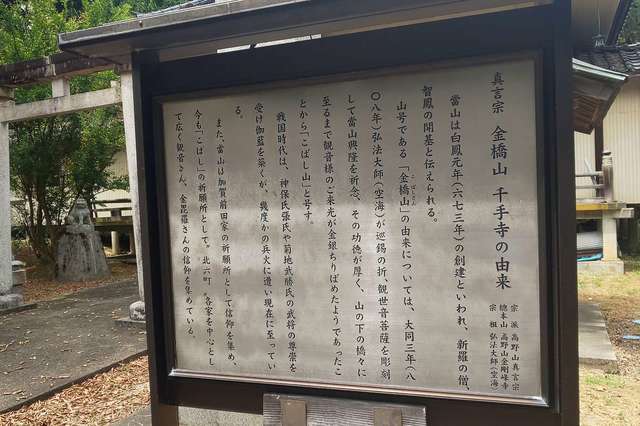 真言宗 金橋山 千手寺の由来
宗派 高野山真言宗
總本山 高野山金剛峰寺
宗祖 弘法大師(空海)
當山は白鳳元年(六七三年)の創建といわれ、新羅の僧、
智鳳の開基と伝えられる。
山号である「金橋山」の由来については、大同三年(八
こばしさん
〇八年)弘法大師(空海)が巡錫の折、観世音菩薩を彫刻
して當山興隆を祈念、その功徳が厚く、山の下の橋々に
至るまで観音様のご来光が金銀ちりばめたようであったこ
とから「こばし山」と号す。
戦国時代は、神保氏張氏や菊地武勝氏の武将の尊崇を
受け伽藍を築くが、幾度かの兵火に遭い現在に至ってい
る。
また、當山は加賀前田家の祈願所として信仰を集め
今も「こばし」の祈願所として。北六町、各家を中心とし
て広く観音さん、金毘羅さんの信仰を集めている。